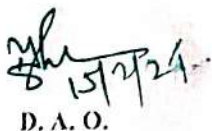 15/2/24
D. A. O.